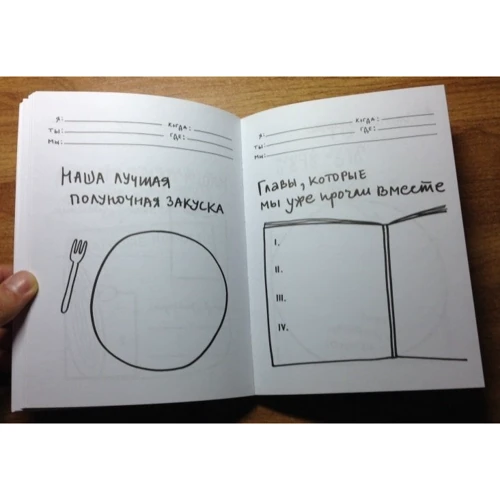 Я: КОГДА:
ТЫ: ГДЕ:
МЫ:
НАША ЛУЧШАЯ
ПОЛУНОЧНАЯ ЗАКУСКА
Я: КОГДА:
ТЫ: ГДЕ:
МЫ:
ГЛАВЫ, КОТОРЫЕ
МЫ УЖЕ ПРОЧЛИ ВМЕСТЕ
I.
II.
III.
IV.